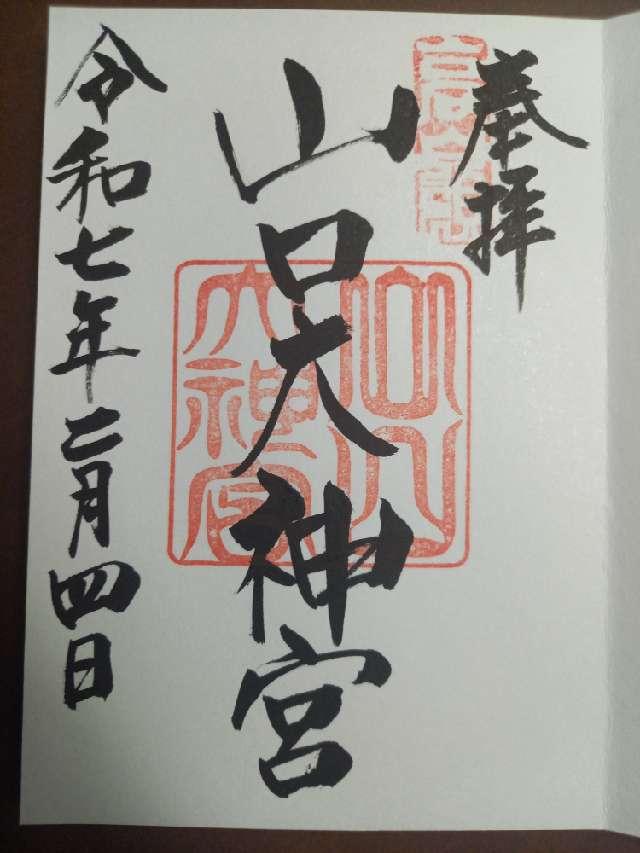 奉拝
山口大神宮
山口大神宮
令和七年二月四日